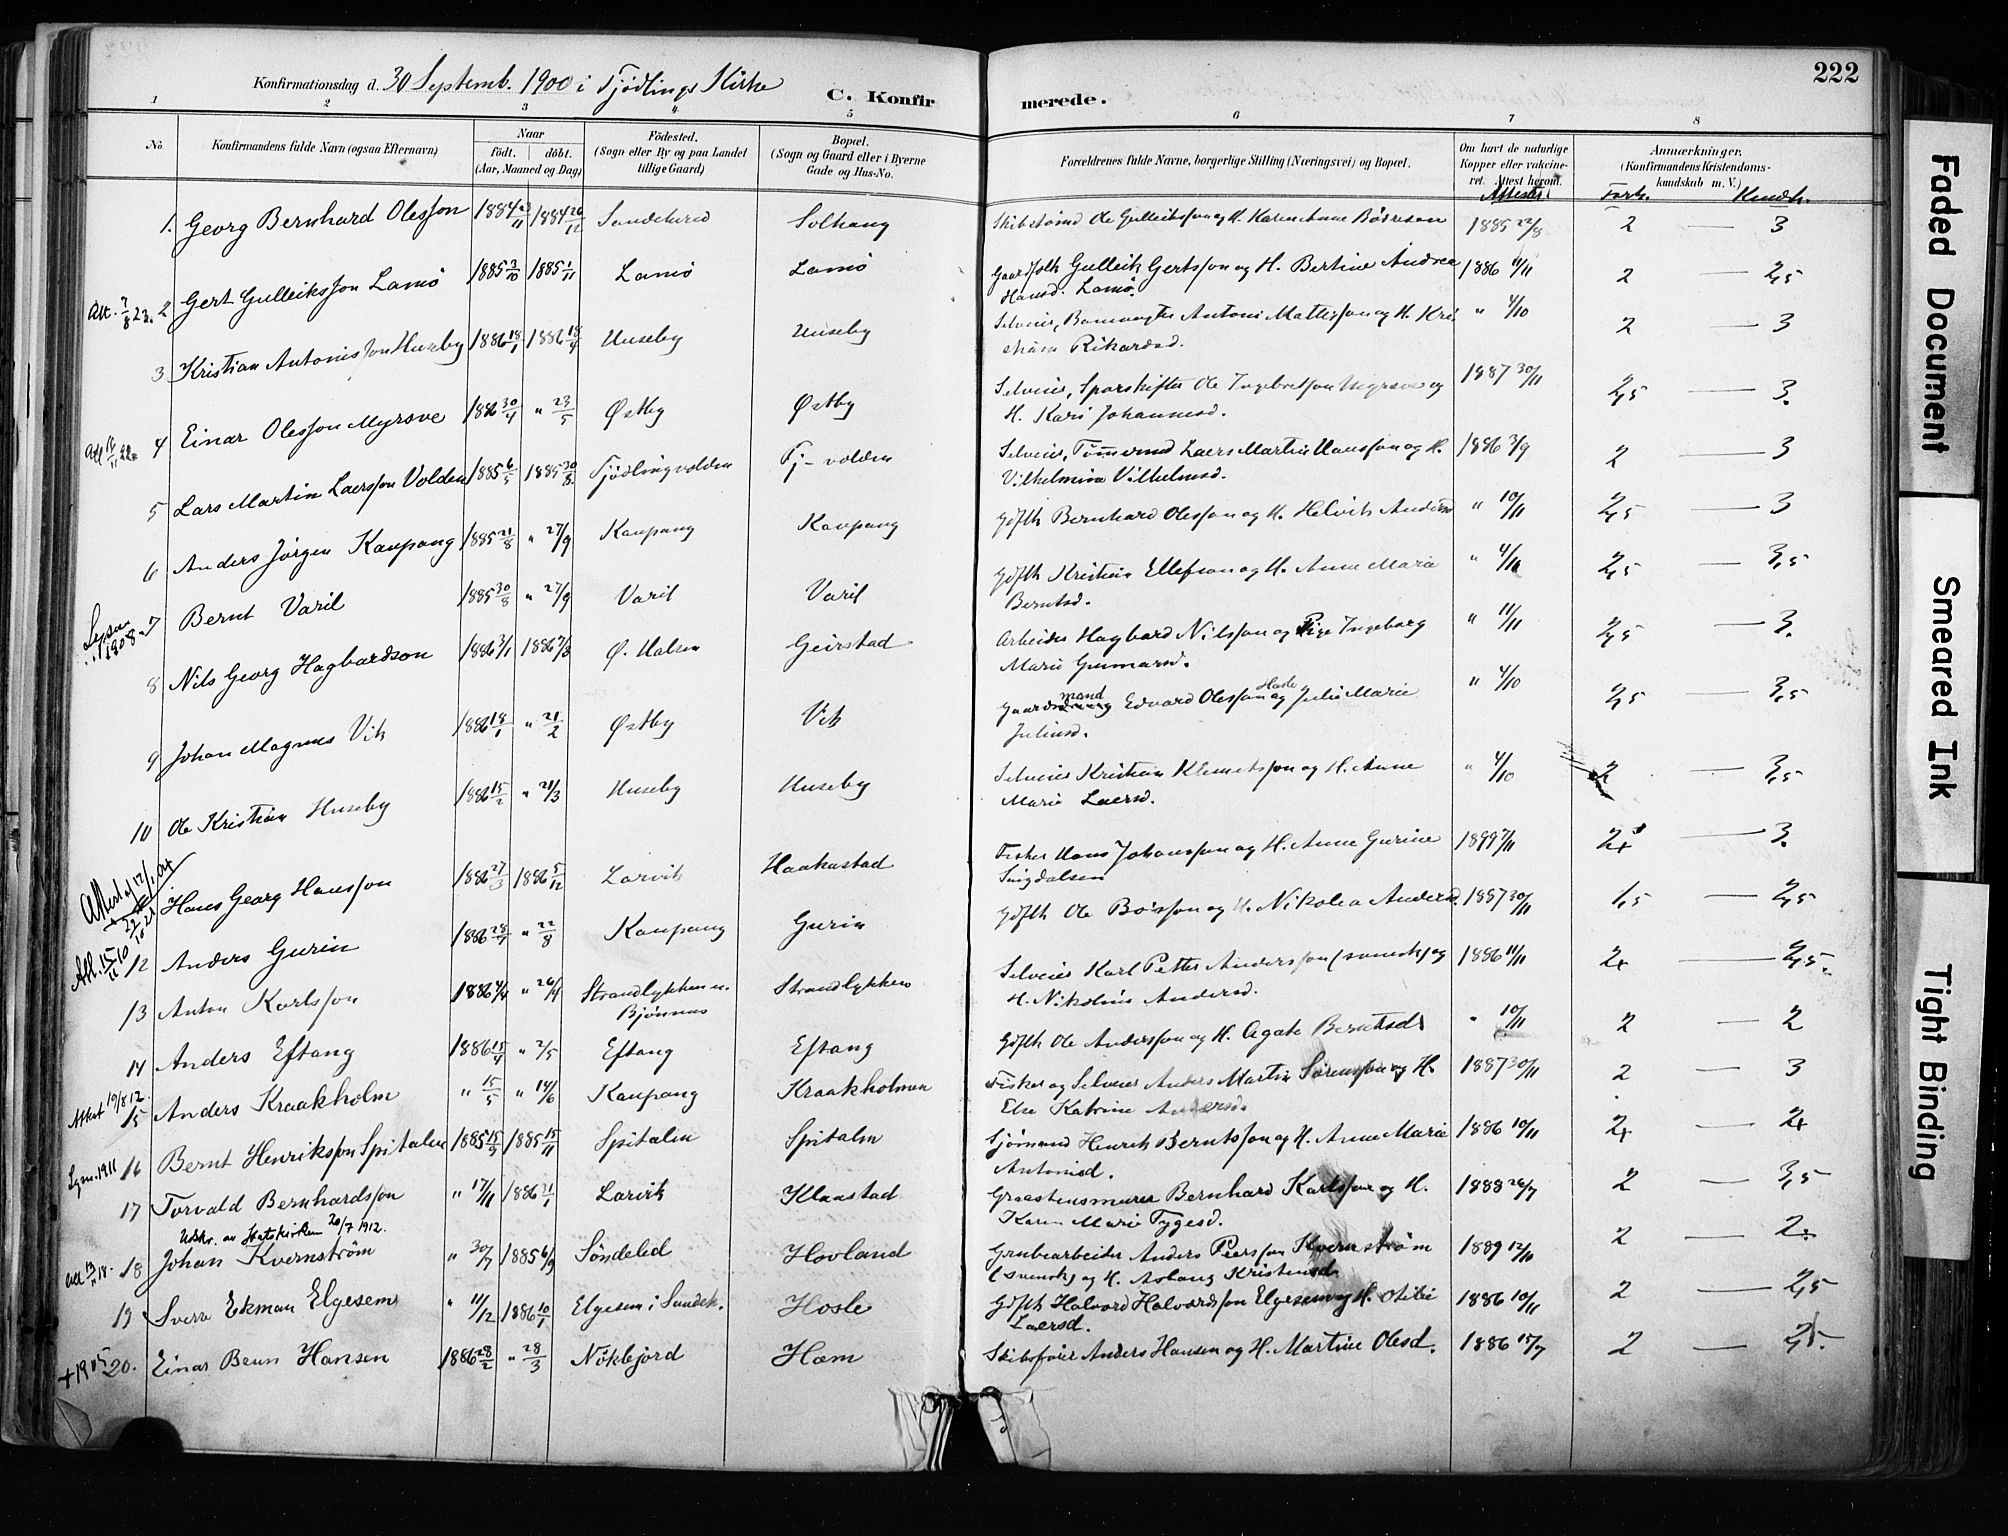 222
Konfirmationsdag d. 30 Septemb. 1900 i Tjødlings Kirke C. Konfirmerede.
1 2 3 4 5 6 7 8
No. Konfirmandens fulde Navn (ogsaa Efternavn) Naar født. døbt. (Aar, Maaned og Dag) Fødested. (Sogn eller By og paa Landet tillige Gaard) Bopæl. (Sogn og Gaard eller i Byerne Gade og Hus-No. Forældrenes fulde Navne, borgerlige Stilling (Næringsvei) og Bopæl. Om havt de naturlige Kopper eller vakcineret. Attest herom. Anmærkninger. (Konfirmandens Kristendomskundskab m. V.)
Attester Forh. Kundsk.
1. Georg Bernhard Olesson 1884 23/11 1884 26/12 Sandeherred Solhaug Skibstømd Ole Gulleiksson og H. Karen Anne Børresen 1885 22/8 2 — 3
Att. 7/8 23. 2 Gert Gulleiksson Lamø 1885 3/10 1885 1/11 Lamø Lamø Gaardfolk Gulleik Gertsson og H. Bertine Andrea 1886 11/11 2 — 2,5
Hansd. Lamø.
3 Kristian Antonisson Huseby 1886 18/1 1886 18/4 Huseby Huseby Selveier, Banevogter Antoni Mattisson og H. Kri- " 4/10 2 — 3
stiane Rikardsd.
4 Einar Olesson Myrsve 1886 30/4 " 23/5 Østby Østby Selveier, Sporskifter Ole Ingebretson Myrsve og 1887 30/11 2,5 — 3.
H. Kari Johannesd.
5 Lars Martin Laersson Volden 1885 6/5 1885 30/8 Tjødlingvolden Tj-volden Selveier, Tømmermd Laers Martin Hansson og H. 1886 3/9 2 — 3
Vilhelmine Vilhelmsd.
6 Anders Jørgen Kaupang 1885 21/8 " 27/9 Kaupang Kaupang Gdflk Bernhard Olesson og H. Helvik Andersd " 10/11 2,5 — 3
7 Bernt Varil 1885 30/8 " 27/9 Varil Varil Gdflk Kristian Ellefson og H. Anne Marie " 4/10 2,5 — 3,5
1908
Berntsd.
8 Nils Georg Hagbardson 1886 3/1 1886 7/3 Ø. Halsen Geirstad Arbeider Hagbard Nilsson og Pige Ingeborg " 11/11 2,5 — 3.
Marie Gunnarsd.
9 Johan Magnus Vik 1886 18/1 " 21/2 Østby Vik Gaardmand Edvard Olesson og Julie Marie " 4/10 2,5 — 3,5
Juliusd.
10 Ole Kristian Huseby 1886 15/2 " 21/3 Huseby Huseby Selveier Kristian Klemetsson og H. Anne " 4/10 2 — 3,5
Marie Laersd.
Hans Georg Hansson 1886 27/3 1886 5/12 Larvik Haakastad Fisker Hans Johansson og H. Anne Gurine 1899 7/11 2+ — 3.
Sigdalsen
Att. 15/11 10 12 Anders Gurin 1886 28/7 " 22/8 Kaupang Gurin Gdflk Ole Boisson og H. Nikolea Andersd. 1887 30/11 1,5 — 2,5
13 Anton Karlsson 1886 4/4 " 26/4 Strandlykken u. Strandlykken Selveier Karl Petter Andersson (svensk) og 1886 11/11 2+ — 2,5.
Bjønnes H. Nikoline Andersd.
14 Anders Eftang 1886 15/4 " 2/5 Eftang Eftang Gdflk Ole Andersson og H. Agate Berntsdr " 10/11 2 — 2
Attest 19/8 12. 15 Anders Kraakholm " 15/5 " 14/6 Kaupang Kraakholmen Fisker og Selveier Anders Martin Sørensson og H. 1887 30/11 2 — 3
Else Katrine Andersd.
Lysn. 1911 16 Bernt Henriksson Spitalen 1885 15/9 1885 15/11 Spitalen Spitalen Sjømand Henrik Berntsson og H. Anne Marie 1886 10/11 2+ — 2+
Antonisd.
17 Torvald Bernhardsson " 17/11 1886 21/1 Larvik Klaastad Graastensmurer Bernhard Karlsson og H. 1888 26/7 2 — 3,5
Karen Marie Tygesd.
Udskr. av Statskirken 20/7 1912.
Att 13/11 18. 18 Johan Kvernstrøm " 30/7 1885 6/9 Søndeled Hovland Grubearbeider Anders Peersson Kvernstrøm 1889 12/10 2 — 2.
(svensk) og H. Aslaug Kristensd.
19 Sverre Ekman Elgesem " 11/12 1886 10/1 Elgesem i Sandeh. Hosle Gdflk Halvord Halvordsson Elgesem og H. Otilie 1886 10/11 2 — 2,5
Laersd.
+1905 20. Einar Brun Hansen 1886 28/2 " 28/3 Nøklejord Hem Skibsfører Anders Hansen og H. Martine Olesd. 1886 15/7 2 — 2,5.
Faded Document
Smeared Ink
Tight Binding